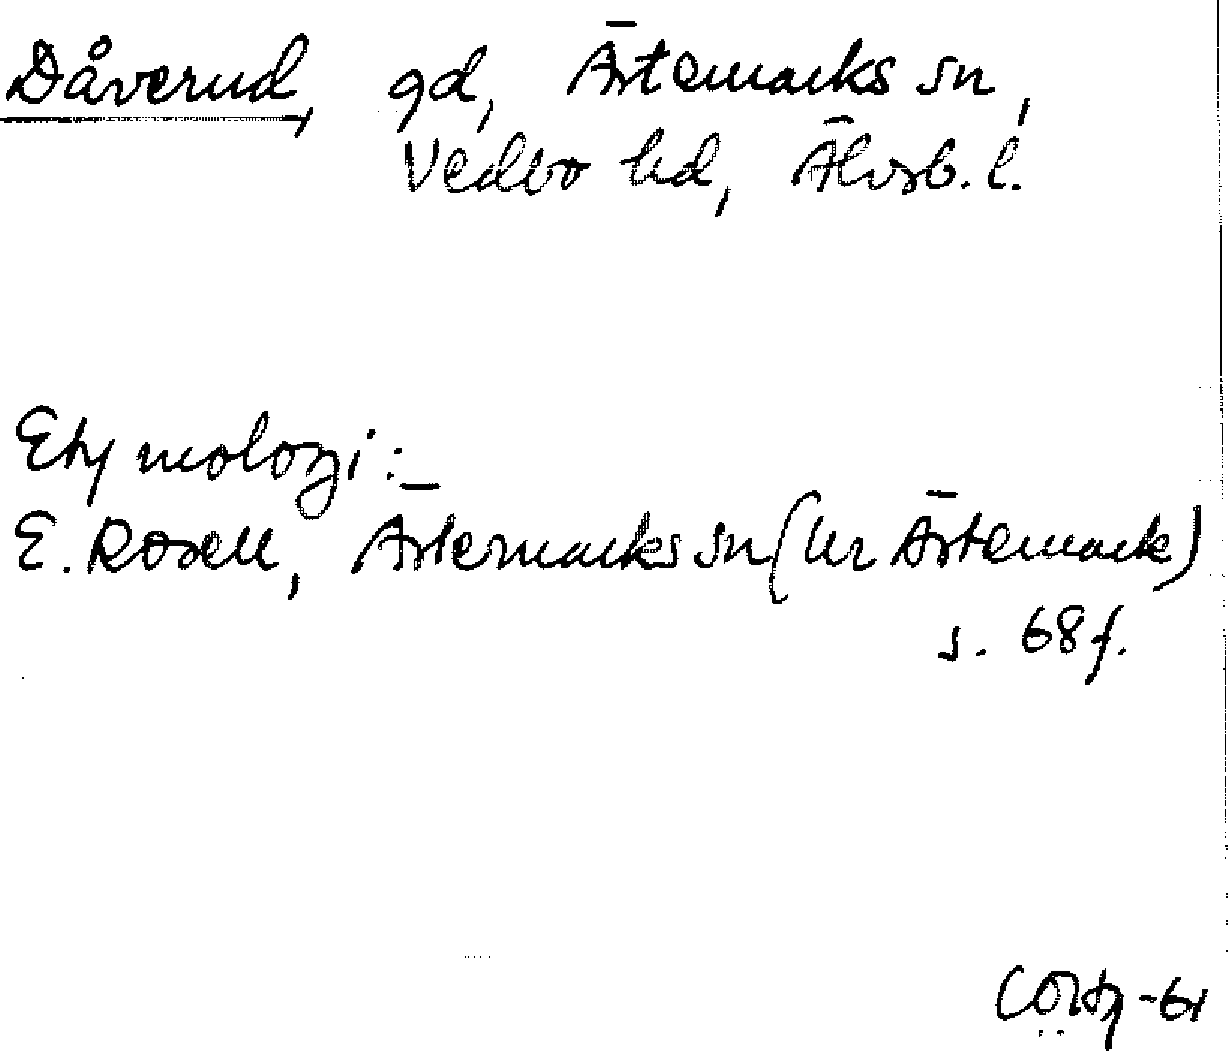 Dåverud, gd, Ärtemarks sn,
Vedbo hd, Älvsb. l.
Etymologi:
E. Rosell, Ärtemarks sn (ur Ärtemark)
s. 68 f.